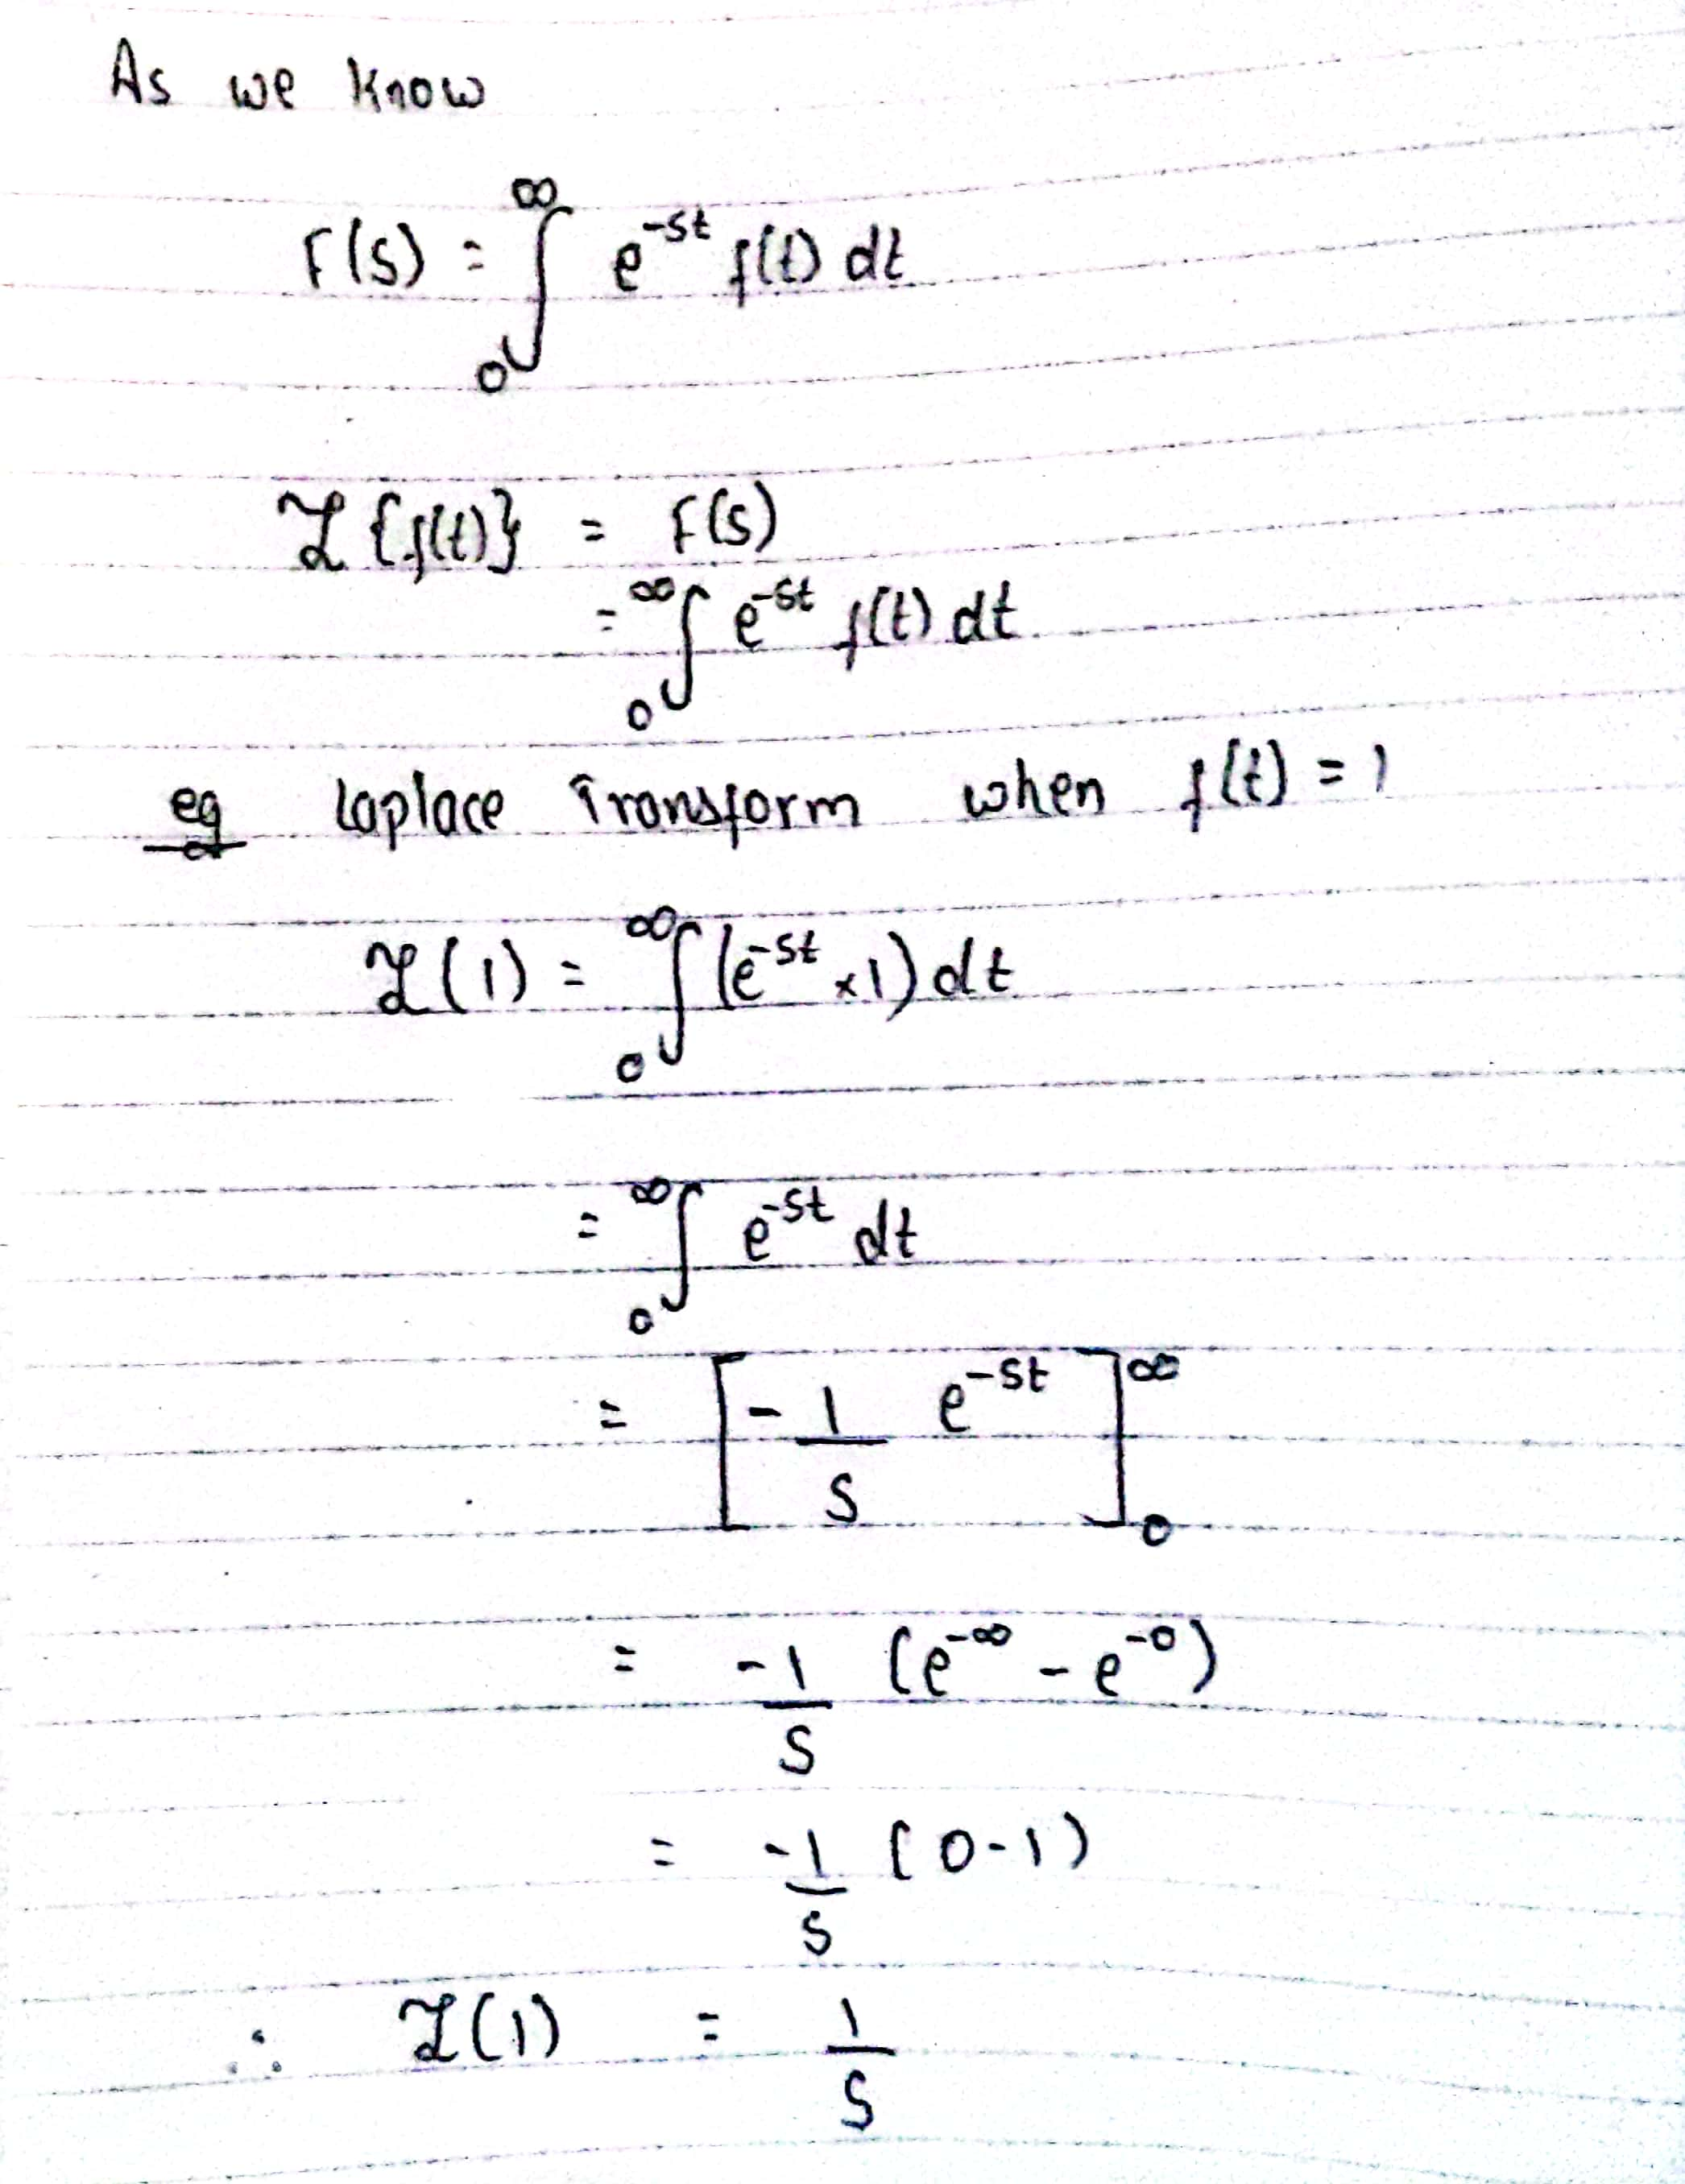 As we know
F(s) = ∫₀^∞ e^{-st} f(t) dt
ℒ{f(t)} = F(s)
= ∫₀^∞ e^{-st} f(t) dt
eg Laplace Transform when f(t) = 1
ℒ(1) = ∫₀^∞ (e^{-st} × 1) dt
= ∫₀^∞ e^{-st} dt
= [-1/s e^{-st}]₀^∞
= -1/s (e^{-∞} - e^{-0})
= -1/s (0-1)
∴ ℒ(1) = 1/s